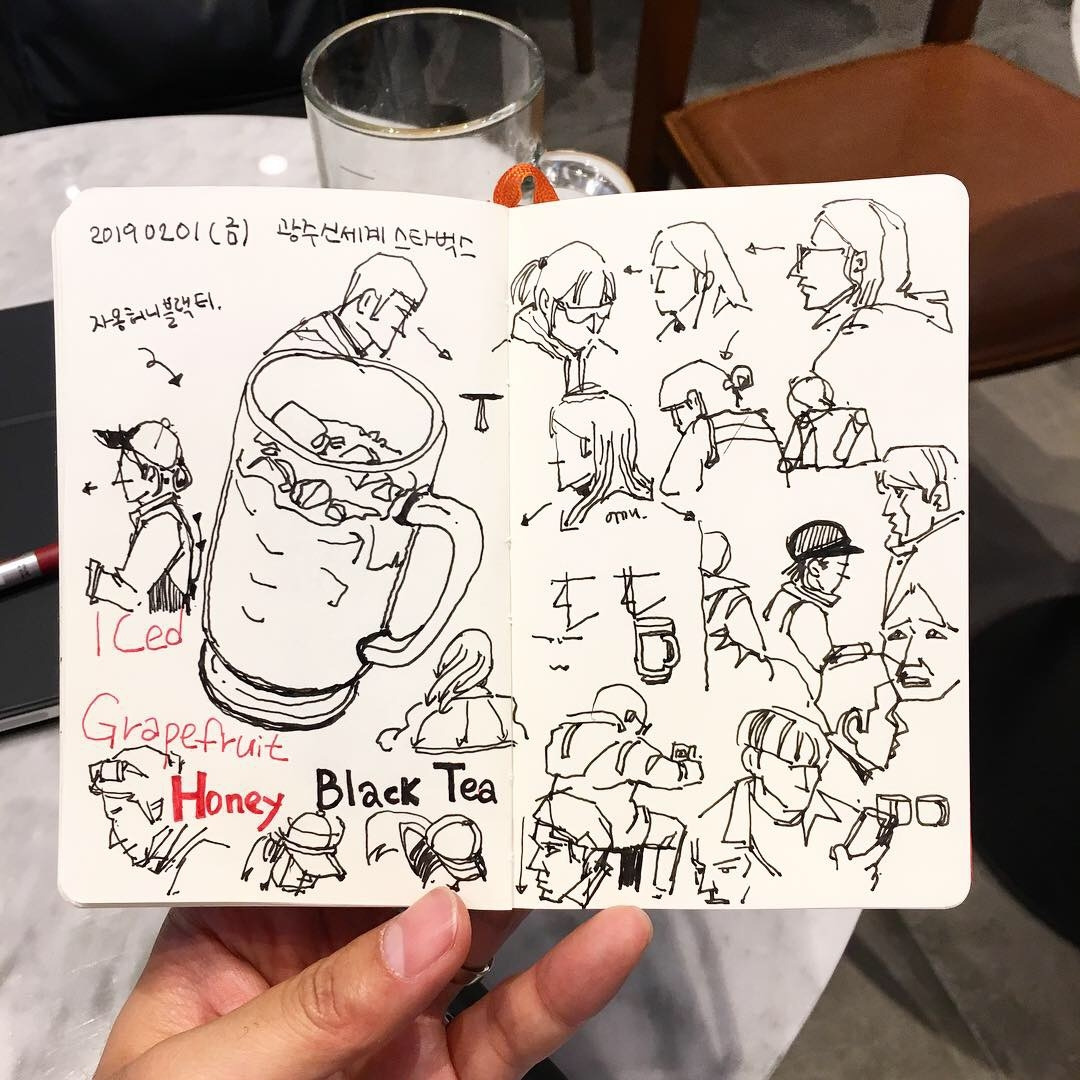 20190201(금) 광주신세계스타벅스
자몽허니블랙티.
ICed
Grapefruit
Honey Black Tea